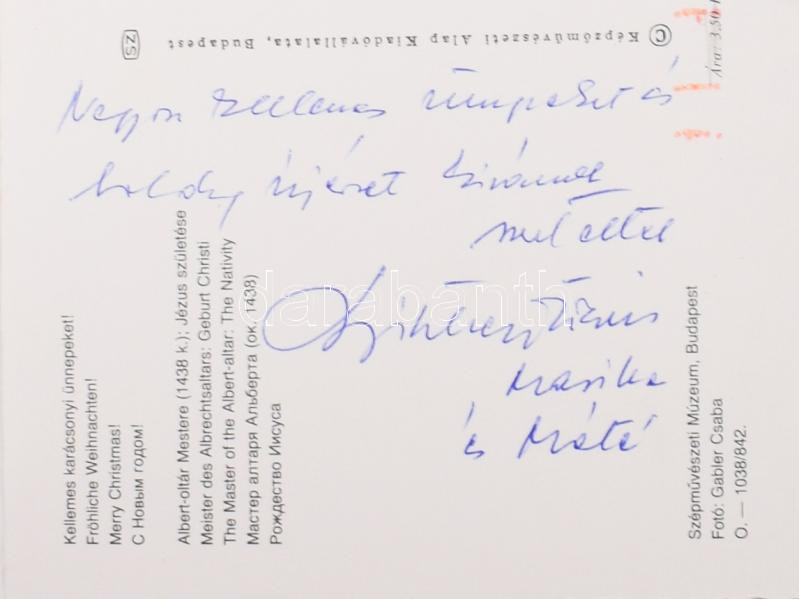 Képzőművészeti Alap Kiadóvállalata, Budapest
ZS
Ára: 3.50
Nagyon kellemes ünnepeket és
boldog újévet kívánnak
szeretettel
Marika
és Máté
Kellemes karácsonyi ünnepeket!
Fröhliche Weihnachten!
Merry Christmas!
С Новым годом!
Albert-oltár Mestere (1438 k.): Jézus születése
Meister des Albrechtsaltars: Geburt Christi
The Master of the Albert-altar: The Nativity
Мастер алтаря Альберта (ок. 1438)
Рождество Иисуса
Szépművészeti Múzeum, Budapest
Fotó: Gabler Csaba
O. — 1038/842.
darabanth